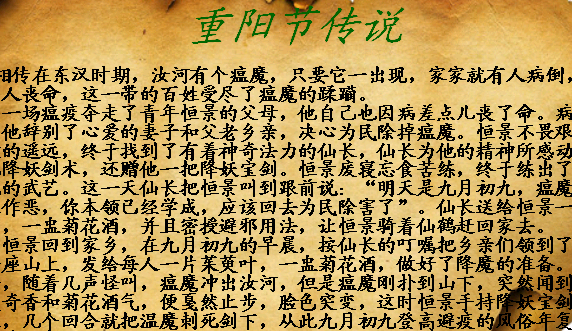 重阳节传说
相传在东汉时期，汝河有个瘟魔，只要它一出现，家家就有人病倒，
人丧命，这一带的百姓受尽了瘟魔的蹂躏。
一场瘟疫夺走了青年恒景的父母，他自己也因病差点儿丧了命。病
他辞别了心爱的妻子和父老乡亲，决心为民除掉瘟魔。恒景不畏艰
的遥远，终于找到了有着神奇法力的仙长，仙长为他的精神所感动
降妖剑术，还赠他一把降妖宝剑。恒景废寝忘食苦练，终于练出了
的武艺。这一天仙长把恒景叫到跟前说：“明天是九月初九，瘟魔
作恶，你本领已经学成，应该回去为民除害了”。仙长送给恒景一
，一盅菊花酒，并且密授避邪用法，让恒景骑着仙鹤赶回家去。
恒景回到家乡，在九月初九的早晨，按仙长的叮嘱把乡亲们领到了
座山上，发给每人一片茱萸叶，一盅菊花酒，做好了降魔的准备。
，随着几声怪叫，瘟魔冲出汝河，但是瘟魔刚扑到山下，突然闻到
奇香和菊花酒气，便戛然止步，脸色突变，这时恒景手持降妖宝剑
，几个回合就把温魔刺死剑下，从此九月初九登高避疫的风俗年复